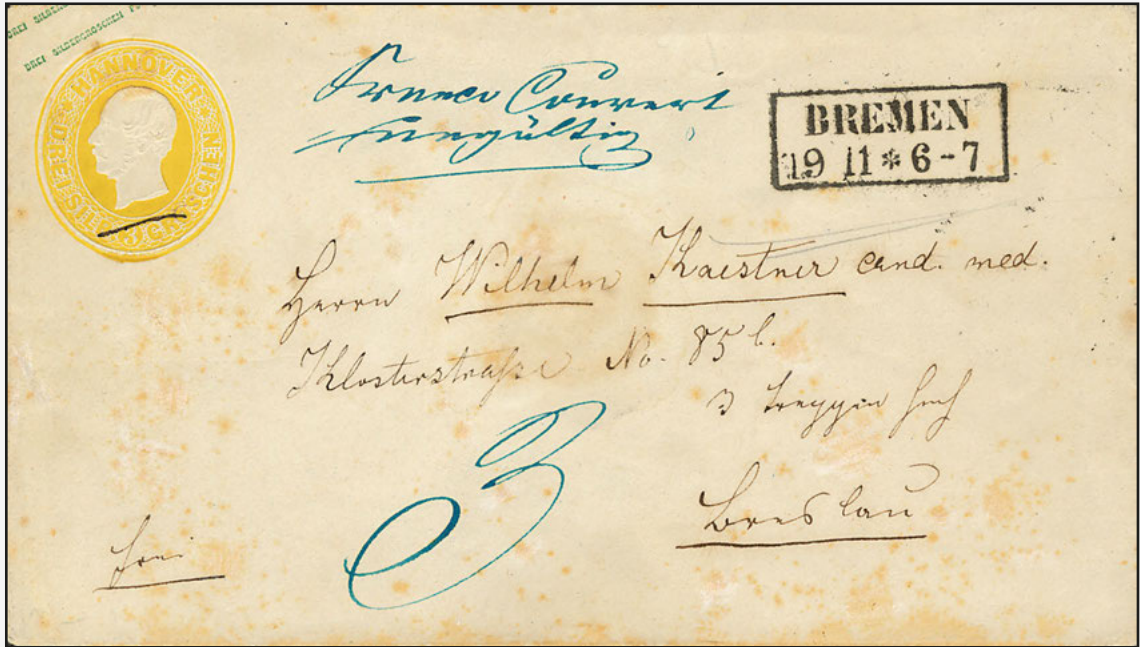 DREI SILBERGROSCHEN
HANNOVER
DREI SILB. 3 GROSCHEN
Franco Couvert
ungültig
BREMEN
19 11 * 6-7
Herrn Wilhelm Kaestner cand. med.
Klosterstraße No. 85 b.
3 Treppen hoch
3
Breslau
frei